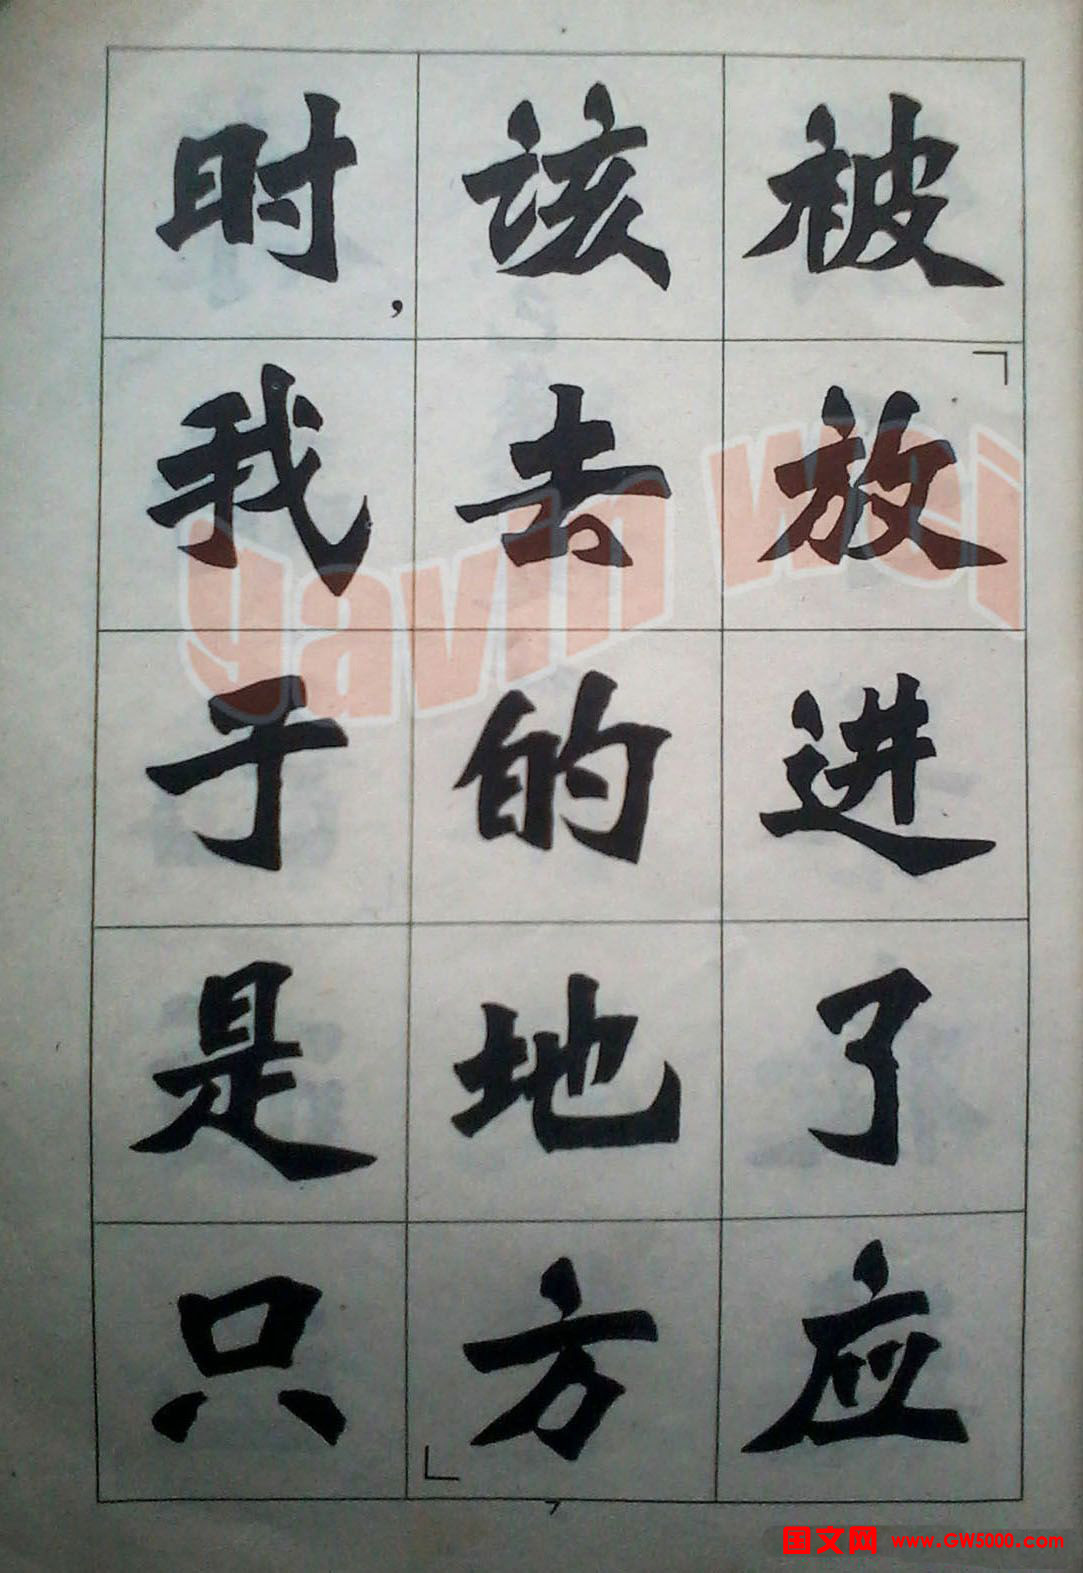 被「放进了应
该去的地方」
时，我于是只
7
yavin wei
国文网 www.GW5000.com